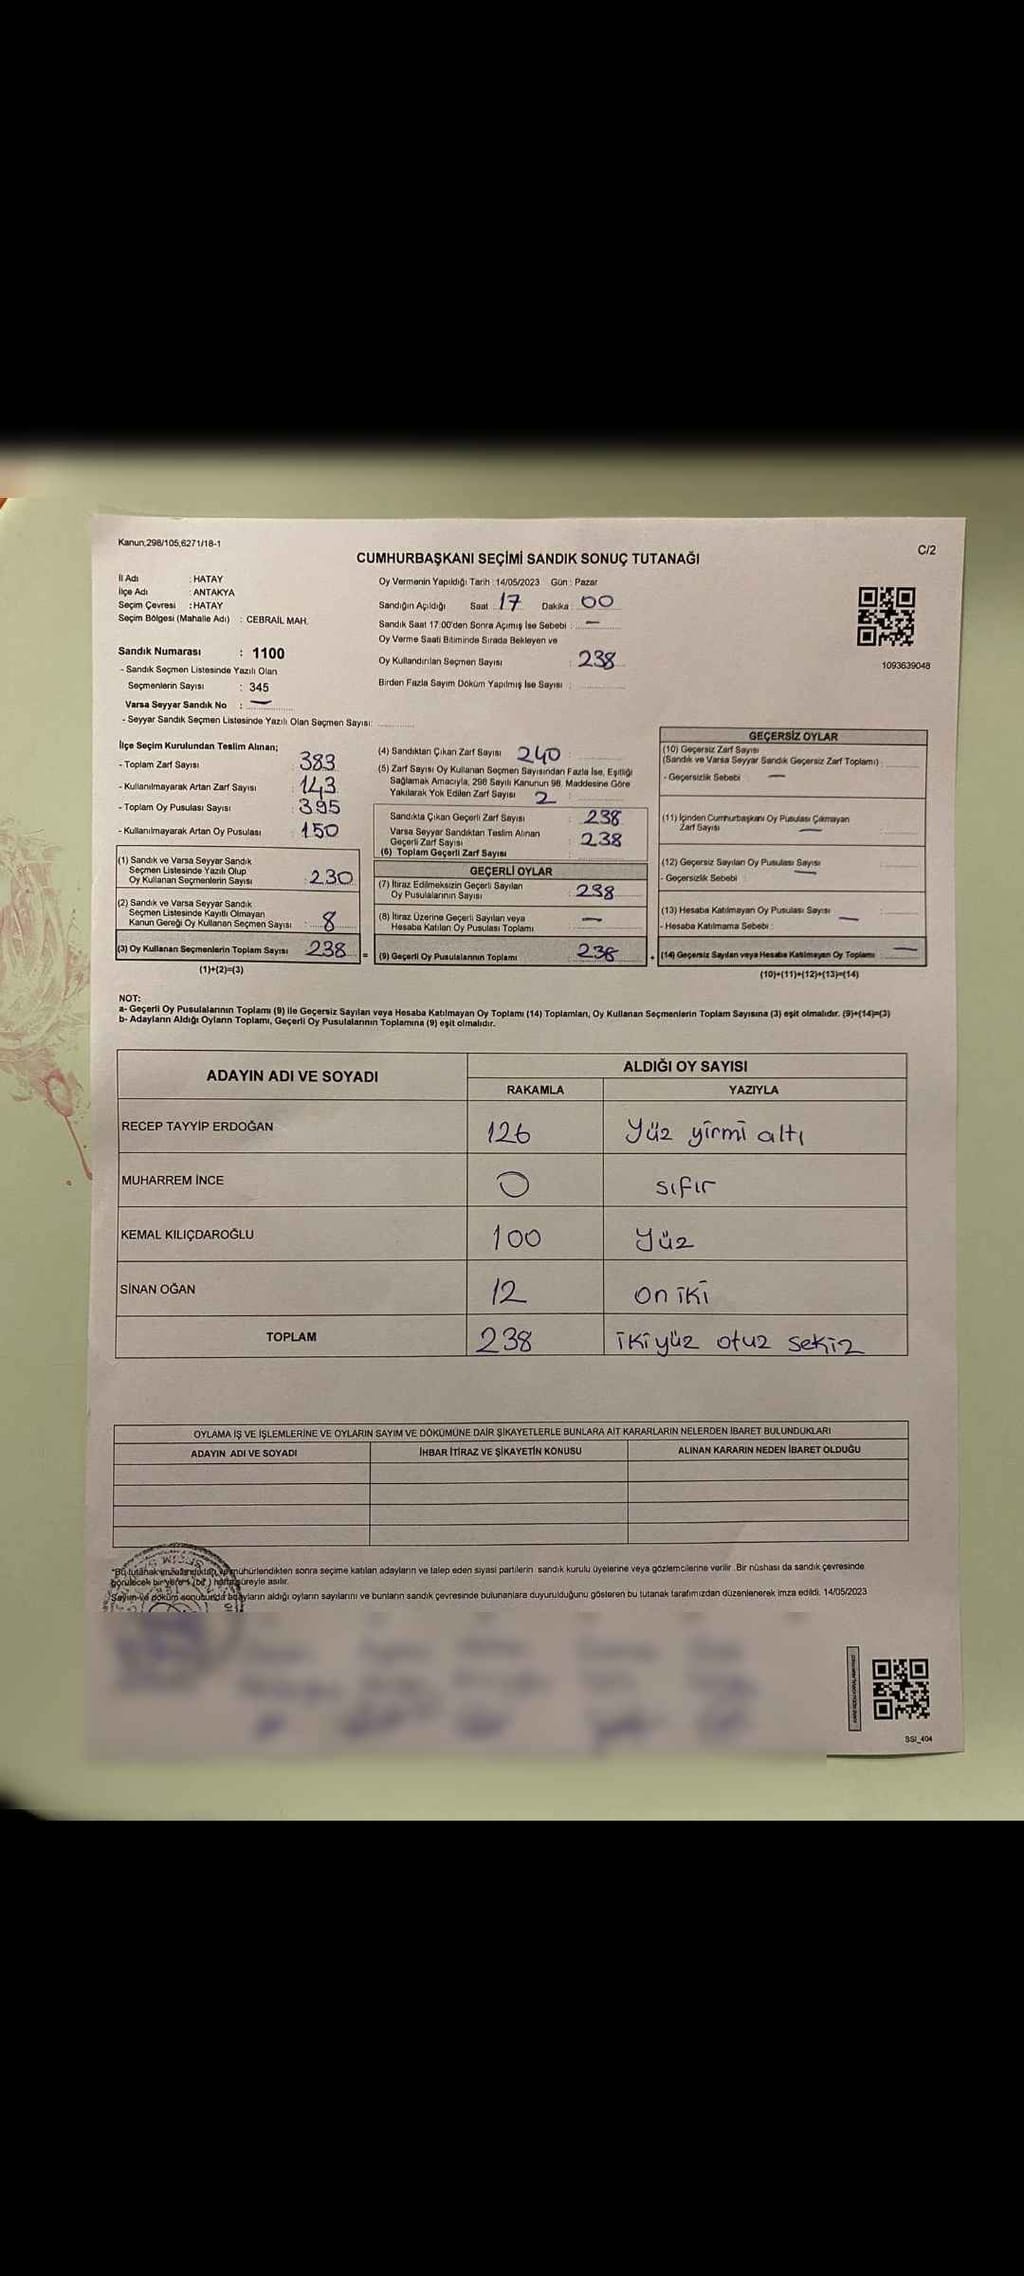 Kanun;298/105,6271/18-1
C/2
CUMHURBAŞKANI SEÇİMİ SANDIK SONUÇ TUTANAĞI
İl Adı : HATAY
İlçe Adı : ANTAKYA
Seçim Çevresi : HATAY
Seçim Bölgesi (Mahalle Adı) : CEBRAİL MAH.
Sandık Numarası : 1100
- Sandık Seçmen Listesinde Yazılı Olan
Seçmenlerin Sayısı : 345
Varsa Seyyar Sandık No : —
- Seyyar Sandık Seçmen Listesinde Yazılı Olan Seçmen Sayısı:
Oy Vermenin Yapıldığı Tarih : 14/05/2023 Gün : Pazar
Sandığın Açıldığı Saat : 17 Dakika : 00
Sandık Saat 17.00'den Sonra Açımış İse Sebebi : —
Oy Verme Saati Bitiminde Sırada Bekleyen ve
Oy Kullandırılan Seçmen Sayısı : 238
Birden Fazla Sayım Döküm Yapılmış İse Sayısı :
1093639048
İlçe Seçim Kurulundan Teslim Alınan;
- Toplam Zarf Sayısı : 383
- Kullanılmayarak Artan Zarf Sayısı : 143
- Toplam Oy Pusulası Sayısı : 395
- Kullanılmayarak Artan Oy Pusulası : 150
(1) Sandık ve Varsa Seyyar Sandık
Seçmen Listesinde Yazılı Olup
Oy Kullanan Seçmenlerin Sayısı : 230
(2) Sandık ve Varsa Seyyar Sandık
Seçmen Listesinde Kayıtlı Olmayan
Kanun Gereği Oy Kullanan Seçmen Sayısı : 8
(3) Oy Kullanan Seçmenlerin Toplam Sayısı : 238
(1)+(2)=(3)
(4) Sandıktan Çıkan Zarf Sayısı 240
(5) Zarf Sayısı Oy Kullanan Seçmen Sayısından Fazla İse, Eşitliği
Sağlamak Amacıyla, 298 Sayılı Kanunun 98. Maddesine Göre
Yakılarak Yok Edilen Zarf Sayısı 2
Sandıkta Çıkan Geçerli Zarf Sayısı : 238
Varsa Seyyar Sandıktan Teslim Alınan
Geçerli Zarf Sayısı : 238
(6) Toplam Geçerli Zarf Sayısı
GEÇERLİ OYLAR
(7) İtiraz Edilmeksizin Geçerli Sayılan
Oy Pusulalarının Sayısı : 238
(8) İtiraz Üzerine Geçerli Sayılan veya
Hesaba Katılan Oy Pusulası Toplamı : —
= (9) Geçerli Oy Pusulalarının Toplamı : 238
GEÇERSİZ OYLAR
(10) Geçersiz Zarf Sayısı
(Sandık ve Varsa Seyyar Sandık Geçersiz Zarf Toplamı) :
- Geçersizlik Sebebi : —
(11) İçinden Cumhurbaşkanı Oy Pusulası Çıkmayan
Zarf Sayısı —
(12) Geçersiz Sayılan Oy Pusulası Sayısı
- Geçersizlik Sebebi : —
(13) Hesaba Katılmayan Oy Pusulası Sayısı —
- Hesaba Katılmama Sebebi :
+ (14) Geçersiz Sayılan veya Hesaba Katılmayan Oy Toplamı —
(10)+(11)+(12)+(13)=(14)
NOT:
a- Geçerli Oy Pusulalarının Toplamı (9) ile Geçersiz Sayılan veya Hesaba Katılmayan Oy Toplamı (14) Toplamları, Oy Kullanan Seçmenlerin Toplam Sayısına (3) eşit olmalıdır. (9)+(14)=(3)
b- Adayların Aldığı Oyların Toplamı, Geçerli Oy Pusulalarının Toplamına (9) eşit olmalıdır.
ADAYIN ADI VE SOYADI
ALDIĞI OY SAYISI
RAKAMLA YAZIYLA
RECEP TAYYİP ERDOĞAN 126 Yüz yirmi altı
MUHARREM İNCE 0 sıfır
KEMAL KILIÇDAROĞLU 100 Yüz
SİNAN OĞAN 12 on iki
TOPLAM 238 ikiyüz otuz sekiz
OYLAMA İŞ VE İŞLEMLERİNE VE OYLARIN SAYIM VE DÖKÜMÜNE DAİR ŞİKAYETLERLE BUNLARA AİT KARARLARIN NELERDEN İBARET BULUNDUKLARI
ADAYIN ADI VE SOYADI İHBAR İTİRAZ VE ŞİKAYETİN KONUSU ALINAN KARARIN NEDEN İBARET OLDUĞU
"Bu tutanak imzalandıktan ve mühürlendikten sonra seçime katılan adayların ve talep eden siyasi partilerin sandık kurulu üyelerine veya gözlemcilerine verilir. Bir nüshası da sandık çevresinde
görülecek bir yere 1 (bir) hafta süreyle asılır.
Sayım ve döküm sonucunda adayların aldığı oyların sayılarını ve bunların sandık çevresinde bulunanlara duyurulduğunu gösteren bu tutanak tarafımızdan düzenlenerek imza edildi. 14/05/2023
SSI_404